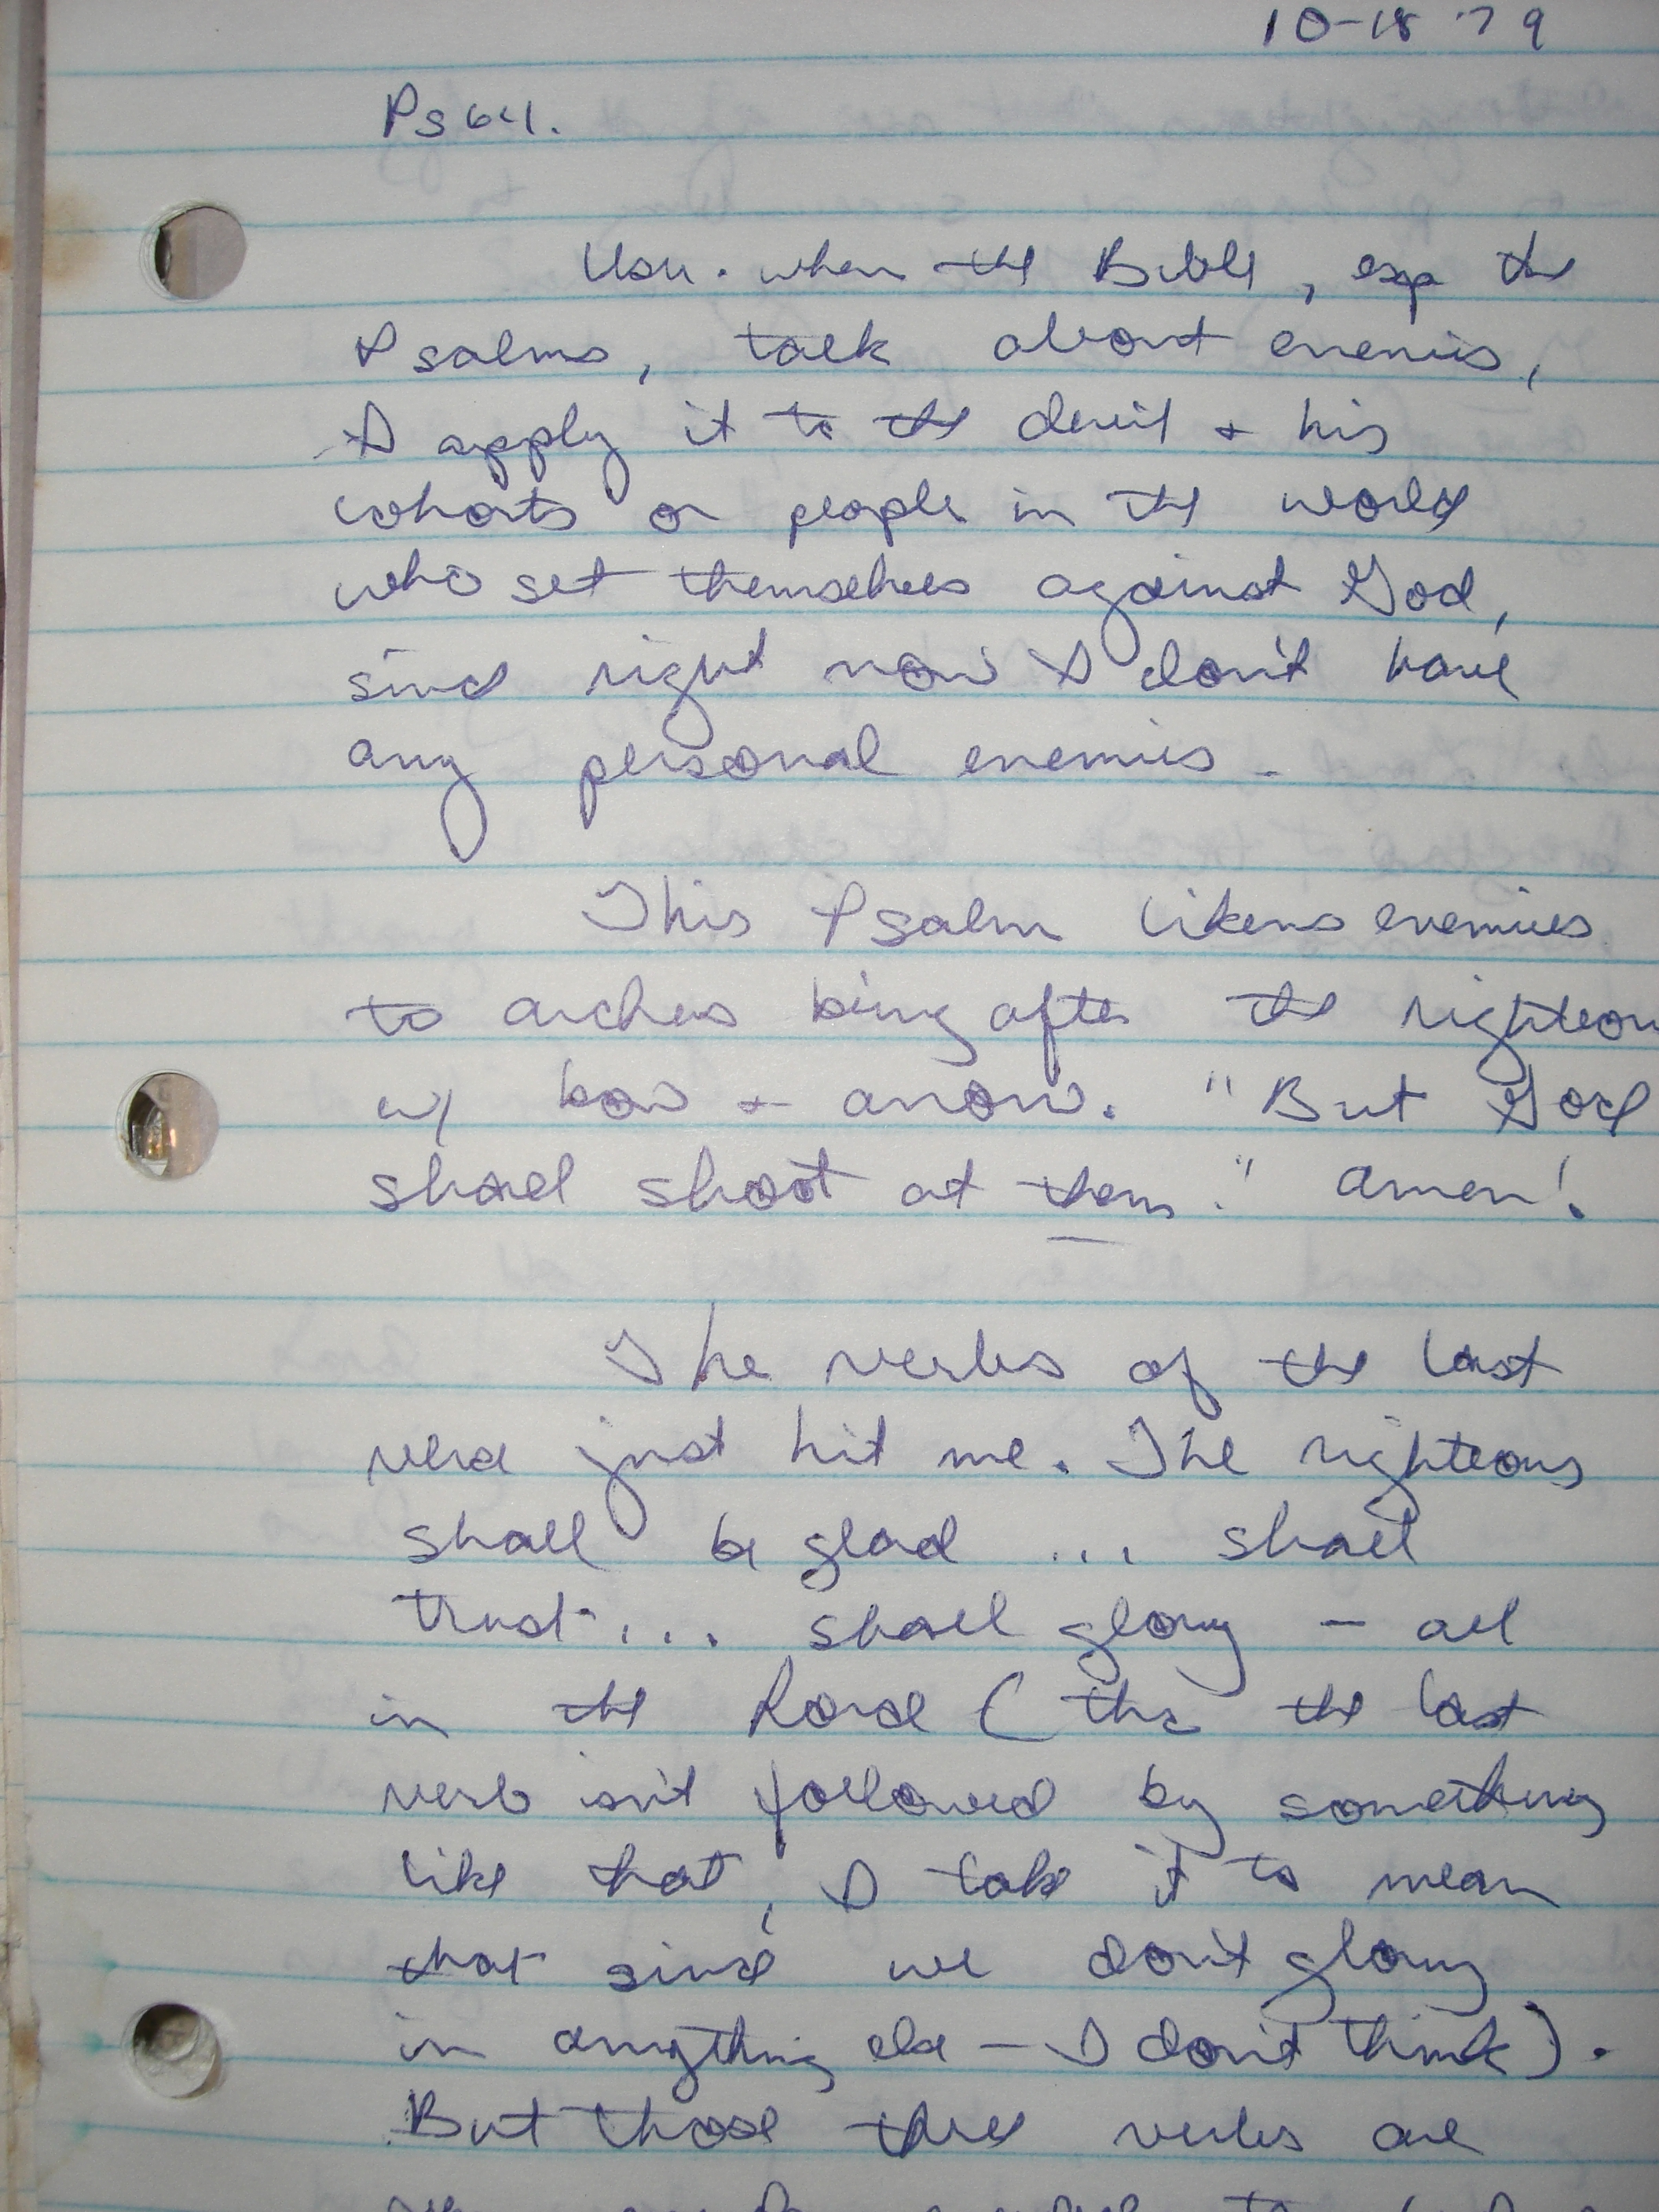 10-18-79
Ps 64.
Usu. when the Bible, esp the
Psalms, talk about enemies,
I apply it to the devil + his
cohorts or people in the world
who set themselves against God,
since right now I don't have
any personal enemies.
This Psalm likens enemies
to archers being after the righteou
w/ bow + arrow. "But God
shall shoot at them." Amen!
The verbs of the last
verse just hit me. The righteous
shall be glad ... shall
trust ... shall glory - all
in the Lord (tho the last
verb isn't followed by something
like that, I take it to mean
that since we don't glory
in anything else - I don't think).
But those three verbs are